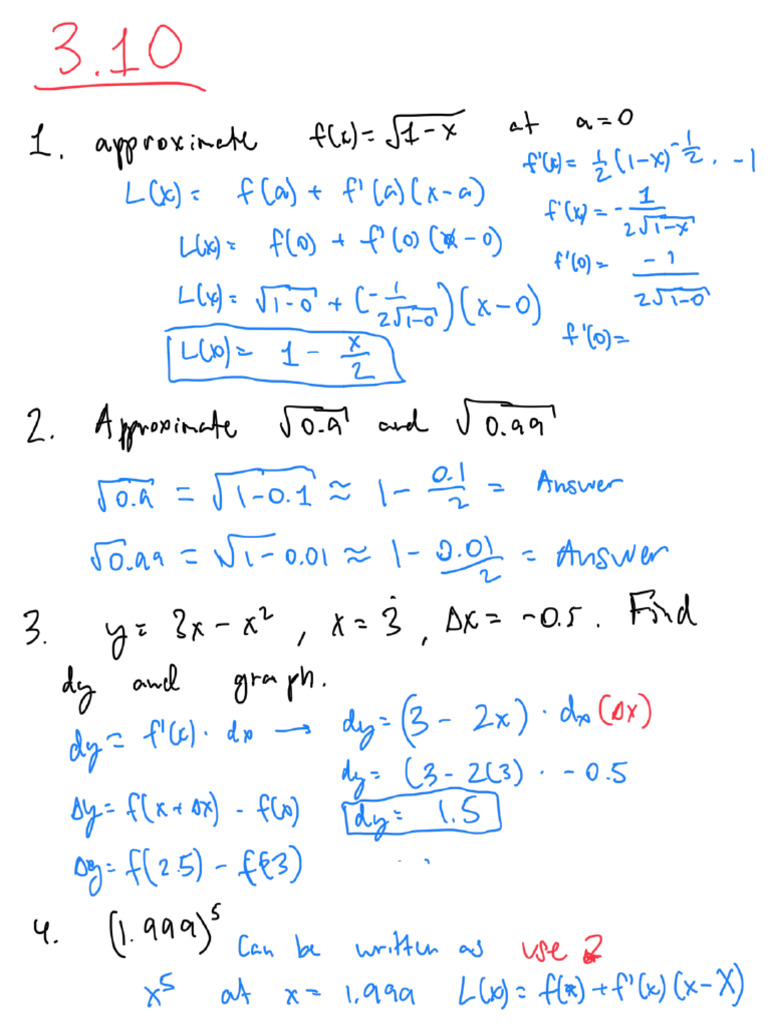 3.10
1. approximate f(x) = √(1-x) at a=0
f'(x) = 1/2 (1-x)^(-1/2) · -1
L(x) = f(a) + f'(a)(x-a)
f'(x) = - 1/(2√(1-x))
L(x) = f(0) + f'(0)(x-0)
f'(0) = -1/(2√(1-0))
L(x) = √(1-0) + (-1/(2√(1-0)))(x-0)
f'(0) =
L(x) = 1 - x/2
2. Approximate √0.9 and √0.99
√0.9 = √(1-0.1) ≈ 1 - 0.1/2 = Answer
√0.99 = √1-0.01 ≈ 1 - 0.01/2 = Answer
3. y = 3x - x², x = 3, Δx = -0.5. Find
dy and graph.
dy = f'(x) · dx → dy = (3 - 2x) · dx (Δx)
dy = (3 - 2(3) · -0.5
Δy = f(x+Δx) - f(x)
dy = 1.5
Δy = f(2.5) - f(3)
4. (1.999)⁵ can be written as use 2
x⁵ at x = 1.999 L(x) = f(x) + f'(x)(x-X)